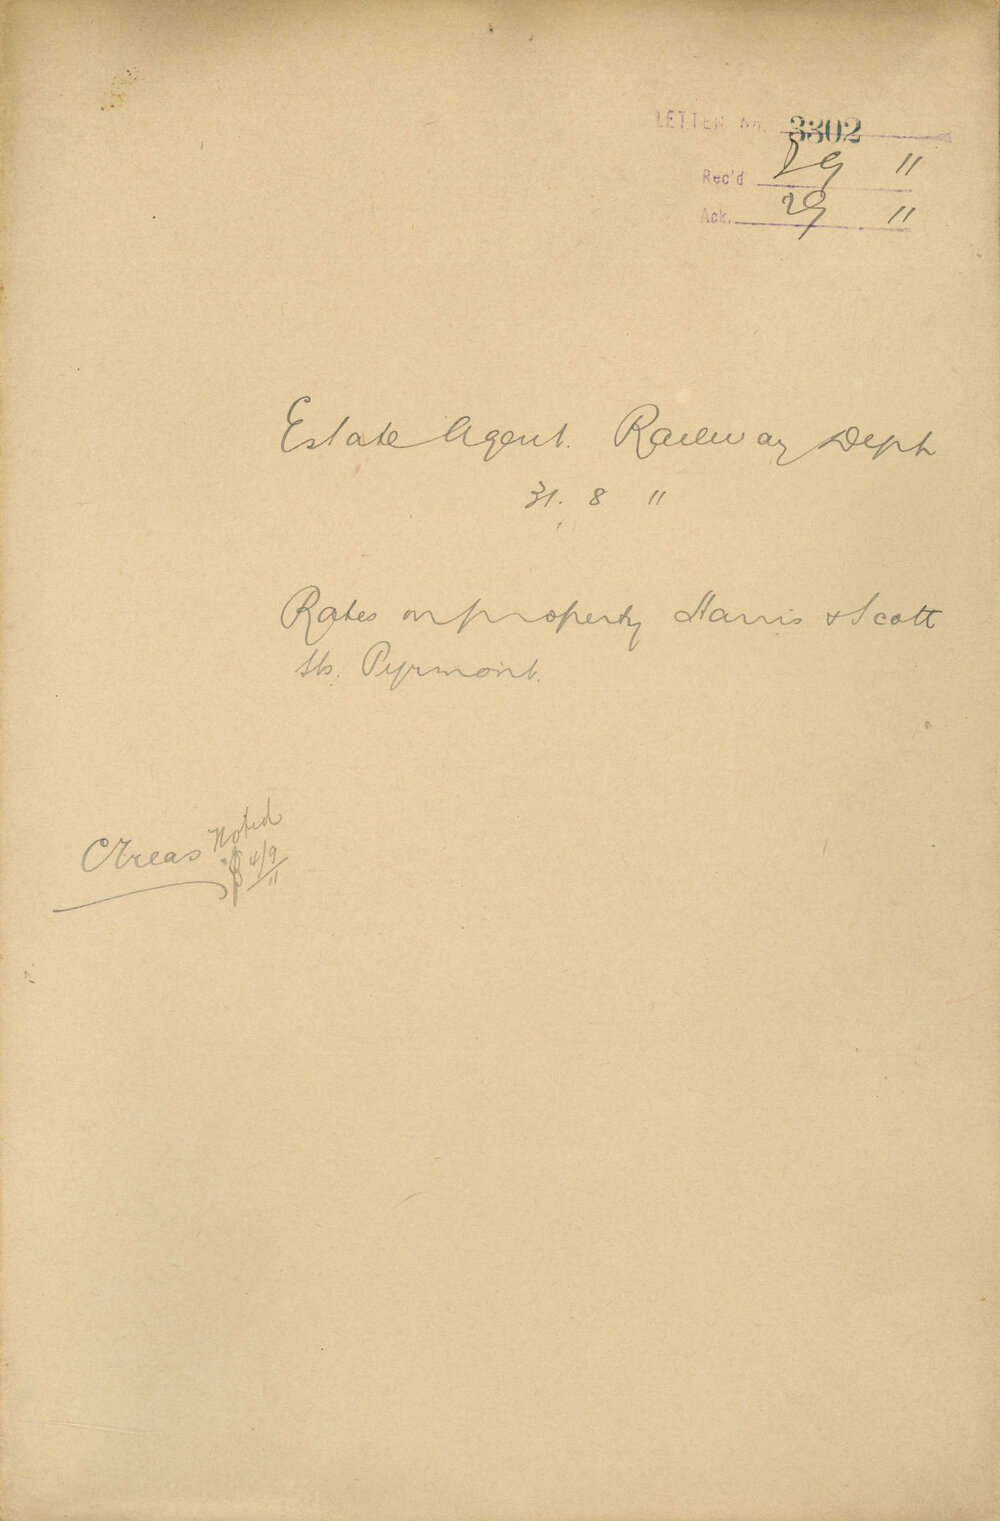 LETTER No. 3302
Rec'd 29 11
Ack. 29 11
Estate Agent. Railway Dept
31. 8 11
Rates on property Harris & Scott
Sts. Pyrmont.
CTreas Noted
4/9
11